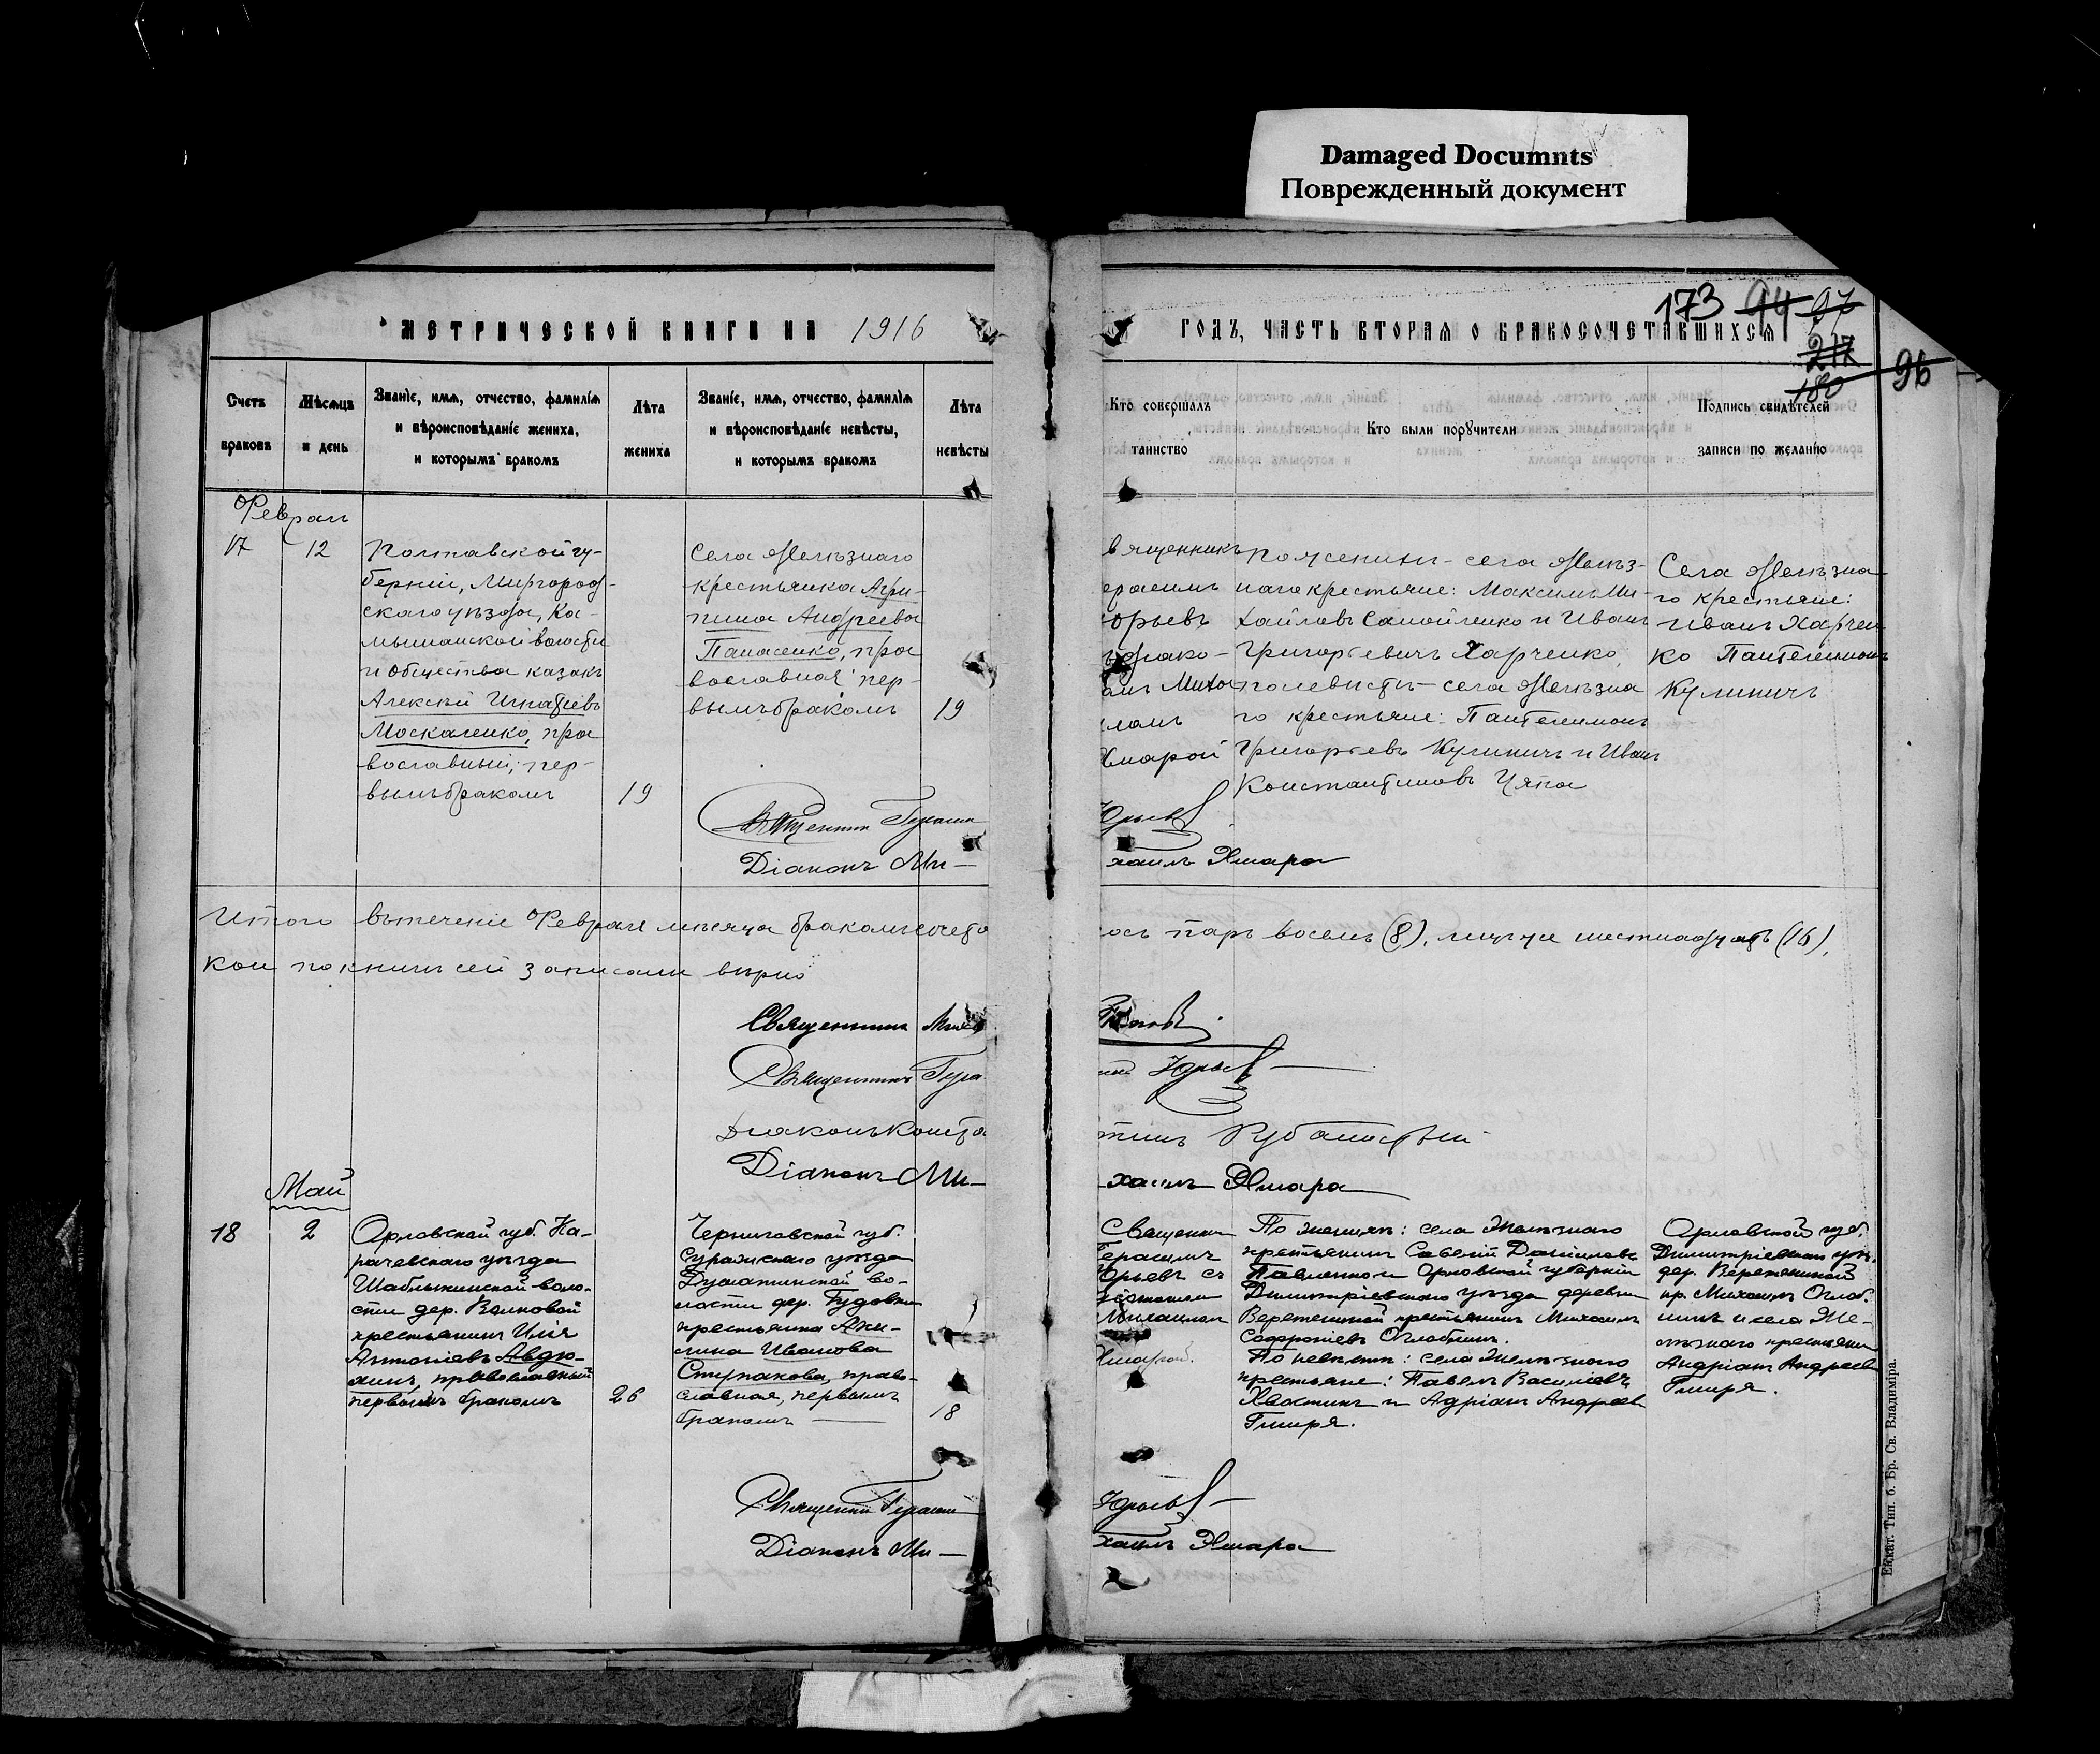 Damaged Documnts
Поврежденный документ
173 94 97
217
180
96
МЕТРИЧЕСКОЙ КНИГИ НА 1916
ГОДЪ, ЧАСТЬ ВТОРАЯ О БРАКОСОЧЕТАВШИХСЯ
Счетъ
браковъ
Мѣсяцъ
и день
Званіе, имя, отчество, фамилія
и вѣроисповѣданіе жениха,
и которымъ бракомъ
Лѣта
жениха
Званіе, имя, отчество, фамилія
и вѣроисповѣданіе невѣсты,
и которымъ бракомъ
Лѣта
невѣсты
Кто совершалъ
таинство
Кто были поручители
Подпись свидѣтелей
записи по желанію
17
12
Полтавской гу-
берніи, Миргород-
скаго уѣзда, Ка-
мышанской волости
и общества казакъ
Алексѣй Игнатіевъ
Москаленко, пра
вославный, пер-
вымъ бракомъ
19
Села Желѣзнаго
крестьянка Агри-
пина Андреева
Панасенко, пра
вославная пер-
вымъ бракомъ
19
Священникъ Герасим
Діаконъ Ми-
вященникъ
ерасимъ
Юрьевъ
Михаи
ломъ
Хмарой
По женихѣ - села Желѣз-
наго крестьяне: Максимъ Ми-
хайловъ Самойленко и Иванъ
Григорьевичъ Харченко,
по невѣстѣ - села Желѣзна
го крестьяне: Пантелеимонъ
Григорьевъ Кулиничъ и Иванъ
Константиновъ
Села Желѣзна
го крестьяне:
Иванъ Харчен
ко Пантелеимонъ
Кулиничъ
Юрьевъ
хаилъ Хмара
Итого втеченіе Февраля мѣсяца бракомъ сочета
кои по книгѣ сей записаны вѣрно
ось паръ восемь (8), лицъ же шестнадцать (16),
Священникъ
Священникъ Гера
Діаконъ Конста
Діаконъ Ми-
Юрьевъ
хаилъ Хмара
Май
18
2
Орловской губ. Ка-
рачевскаго уѣзда
Шаблыкинской воло-
сти дер. Волковой
крестьянинъ Илія
Антоніевъ Авдю-
хинъ, православный
первымъ бракомъ
26
Черниговской губ.
Суражскаго уѣзда
Душатинской во-
лости дер. Гудовки
крестьянка Аки-
лина Иванова
Ступакова, право-
славная, первымъ
бракомъ
18
Священникъ Герасим
Діаконъ Ми-
Священник
Герасимъ
Юрьевъ съ
діакономъ
Михаиломъ
Хмарой.
По женихѣ: села Желѣзнаго
крестьянинъ Савелій Даниловъ
Павленко и Орловской губерніи
Димитріевскаго уѣзда деревни
Веретениной крестьянинъ Михаилъ
Софроніевъ Оглоблинъ.
По невѣстѣ: села Желѣзнаго
крестьяне: Павелъ Василіевъ
Хвостикъ и Адріанъ Андреев
Гмиря.
Орловской губ.
Димитріевскаго уѣз.
дер. Веретениной
кр. Михаилъ Оглоб.
линъ и села Же-
лѣзнаго крестьянин
Андріанъ Андреев
Гмиря.
Юрьевъ
хаилъ Хмара
Екат. Тип. б. Бр. Св. Владиміра.